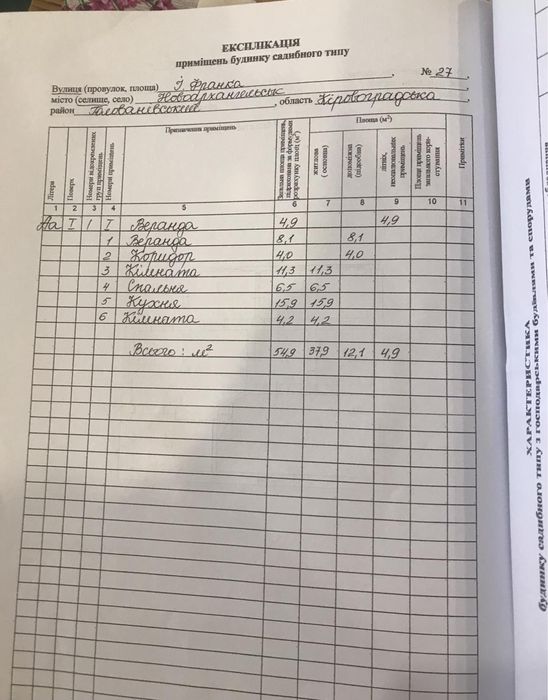 ЕКСПЛІКАЦІЯ
приміщень будинку садибного типу
№ 27,
Вулиця (провулок, площа) І. Франка,
місто (селище, село) Новоархангельськ, область Кіровоградська
район
Літера
Поверх
Номери відокремлених груп приміщень
Номери приміщень
Призначення приміщень
Загальна площа приміщень, підрахована за формулами розрахунку площ (м²)
Площа (м²)
житлова (основна)
допоміжна (підсобна)
літніх неопалювальних приміщень
Площа приміщень загального користування
Примітки
1 2 3 4 5 6 7 8 9 10 11
Аа І І І Веранда 4,9 4,9
1 Веранда 8,1 8,1
2 Коридор 4,0 4,0
3 Кімната 11,3 11,3
4 Спальня 6,5 6,5
5 Кухня 15,9 15,9
6 Кімната 4,2 4,2
Всього : м² 54,9 37,9 12,1 4,9
ХАРАКТЕРИСТИКА
будинку садибного типу з господарськими будівлями та спорудами